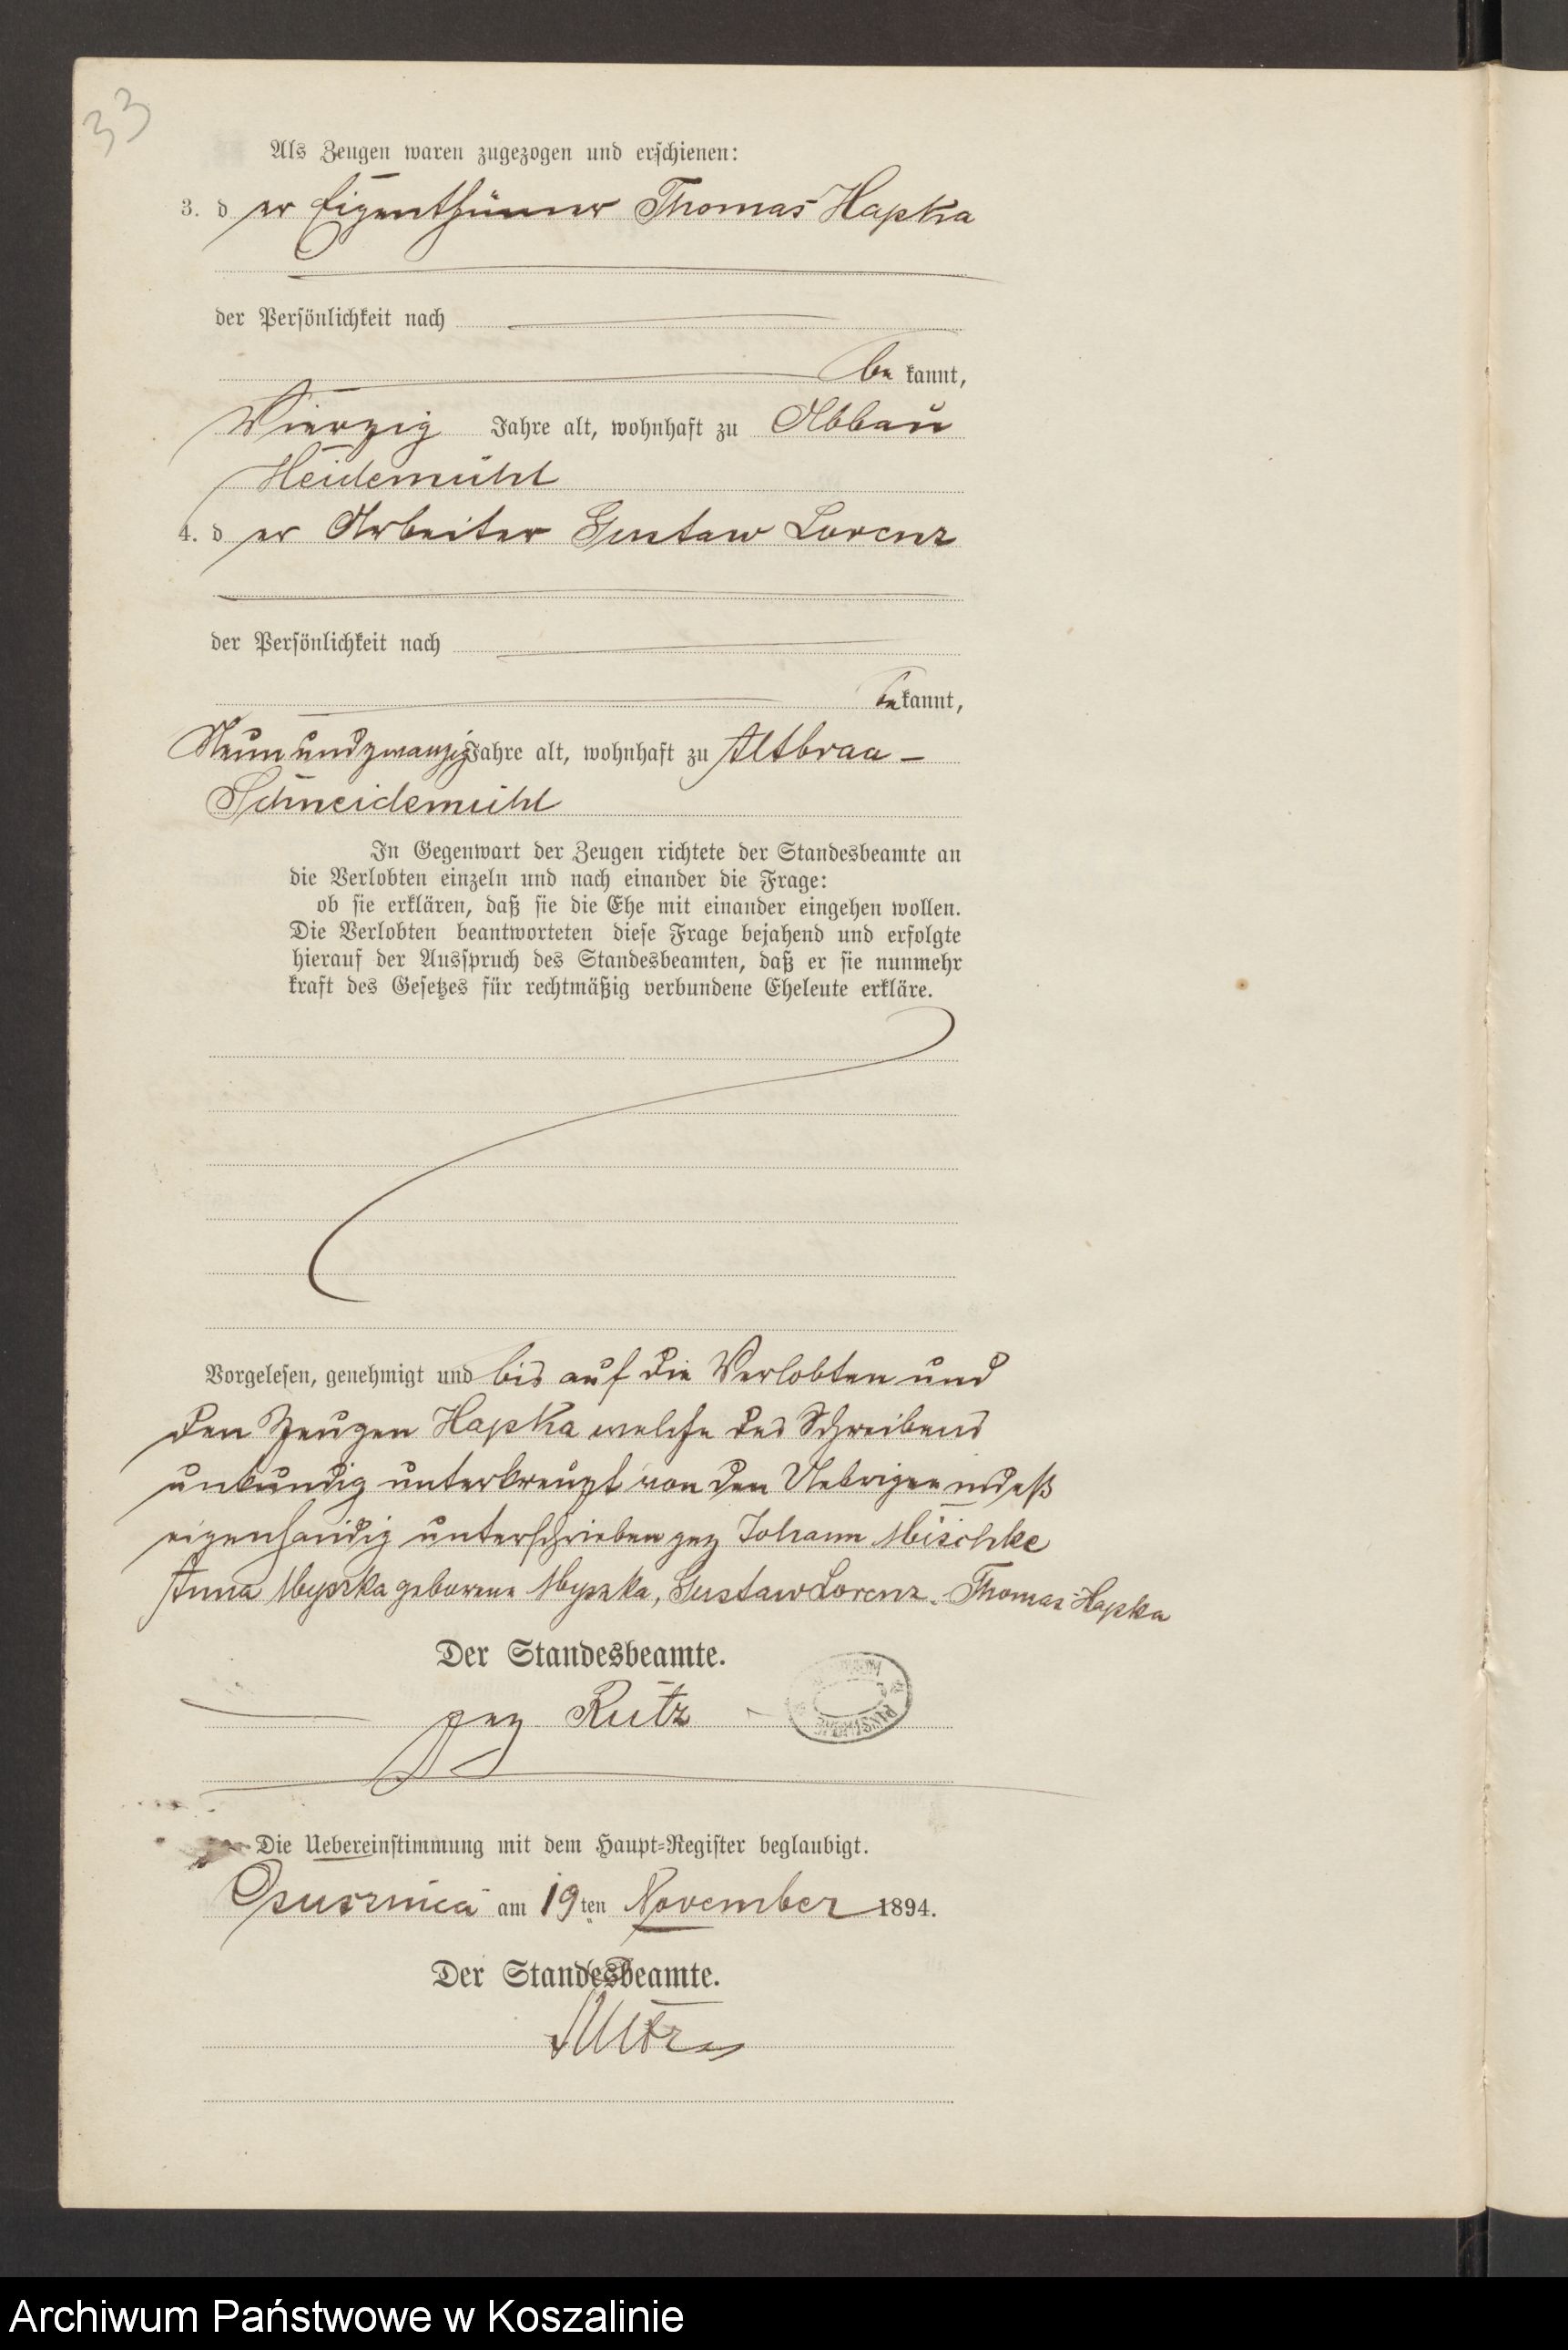 33
Als Zeugen waren zugezogen und erschienen:
3. d er Eigenthümer Thomas Hapka
der Persönlichkeit nach
be kannt,
Vierzig Jahre alt, wohnhaft zu Abbau
Heidemühl
4. d er Arbeiter Gustaw Lorenz
der Persönlichkeit nach
be kannt,
Neunundzwanzig Jahre alt, wohnhaft zu Altbraa-
Schneidemühl
In Gegenwart der Zeugen richtete der Standesbeamte an
die Verlobten einzeln und nach einander die Frage:
ob sie erklären, daß sie die Ehe mit einander eingehen wollen.
Die Verlobten beantworteten diese Frage bejahend und erfolgte
hierauf der Ausspruch des Standesbeamten, daß er sie nunmehr
kraft des Gesetzes für rechtmäßig verbundene Eheleute erkläre.
Vorgelesen, genehmigt und bis auf die Verlobten und
den Zeugen Hapka welche des Schreibens
unkundig unterkreuzt von den Uebrigen indeß
eigenhändig unterschrieben gez Johann Mischke
Anna Myszka geborene Myszka, Gustaw Lorenz. Thomas Hapka
Der Standesbeamte.
gez Rutz
Die Uebereinstimmung mit dem Haupt-Register beglaubigt.
Osusznica am 19ten November 1894.
Der Standesbeamte.
Rutz
Archiwum Państwowe w Koszalinie